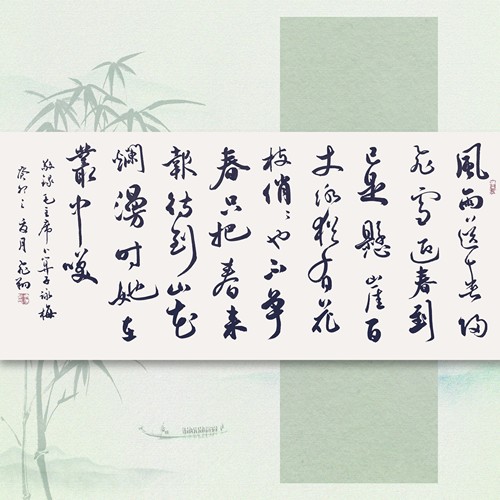 風雨送春归
飞雪迎春到
已是懸崖百
丈冰猶有花
枝俏〻也不争
春只把春来
報待到山花
爛漫时她在
叢中笑
敬录毛主席卜算子咏梅
癸卯之月